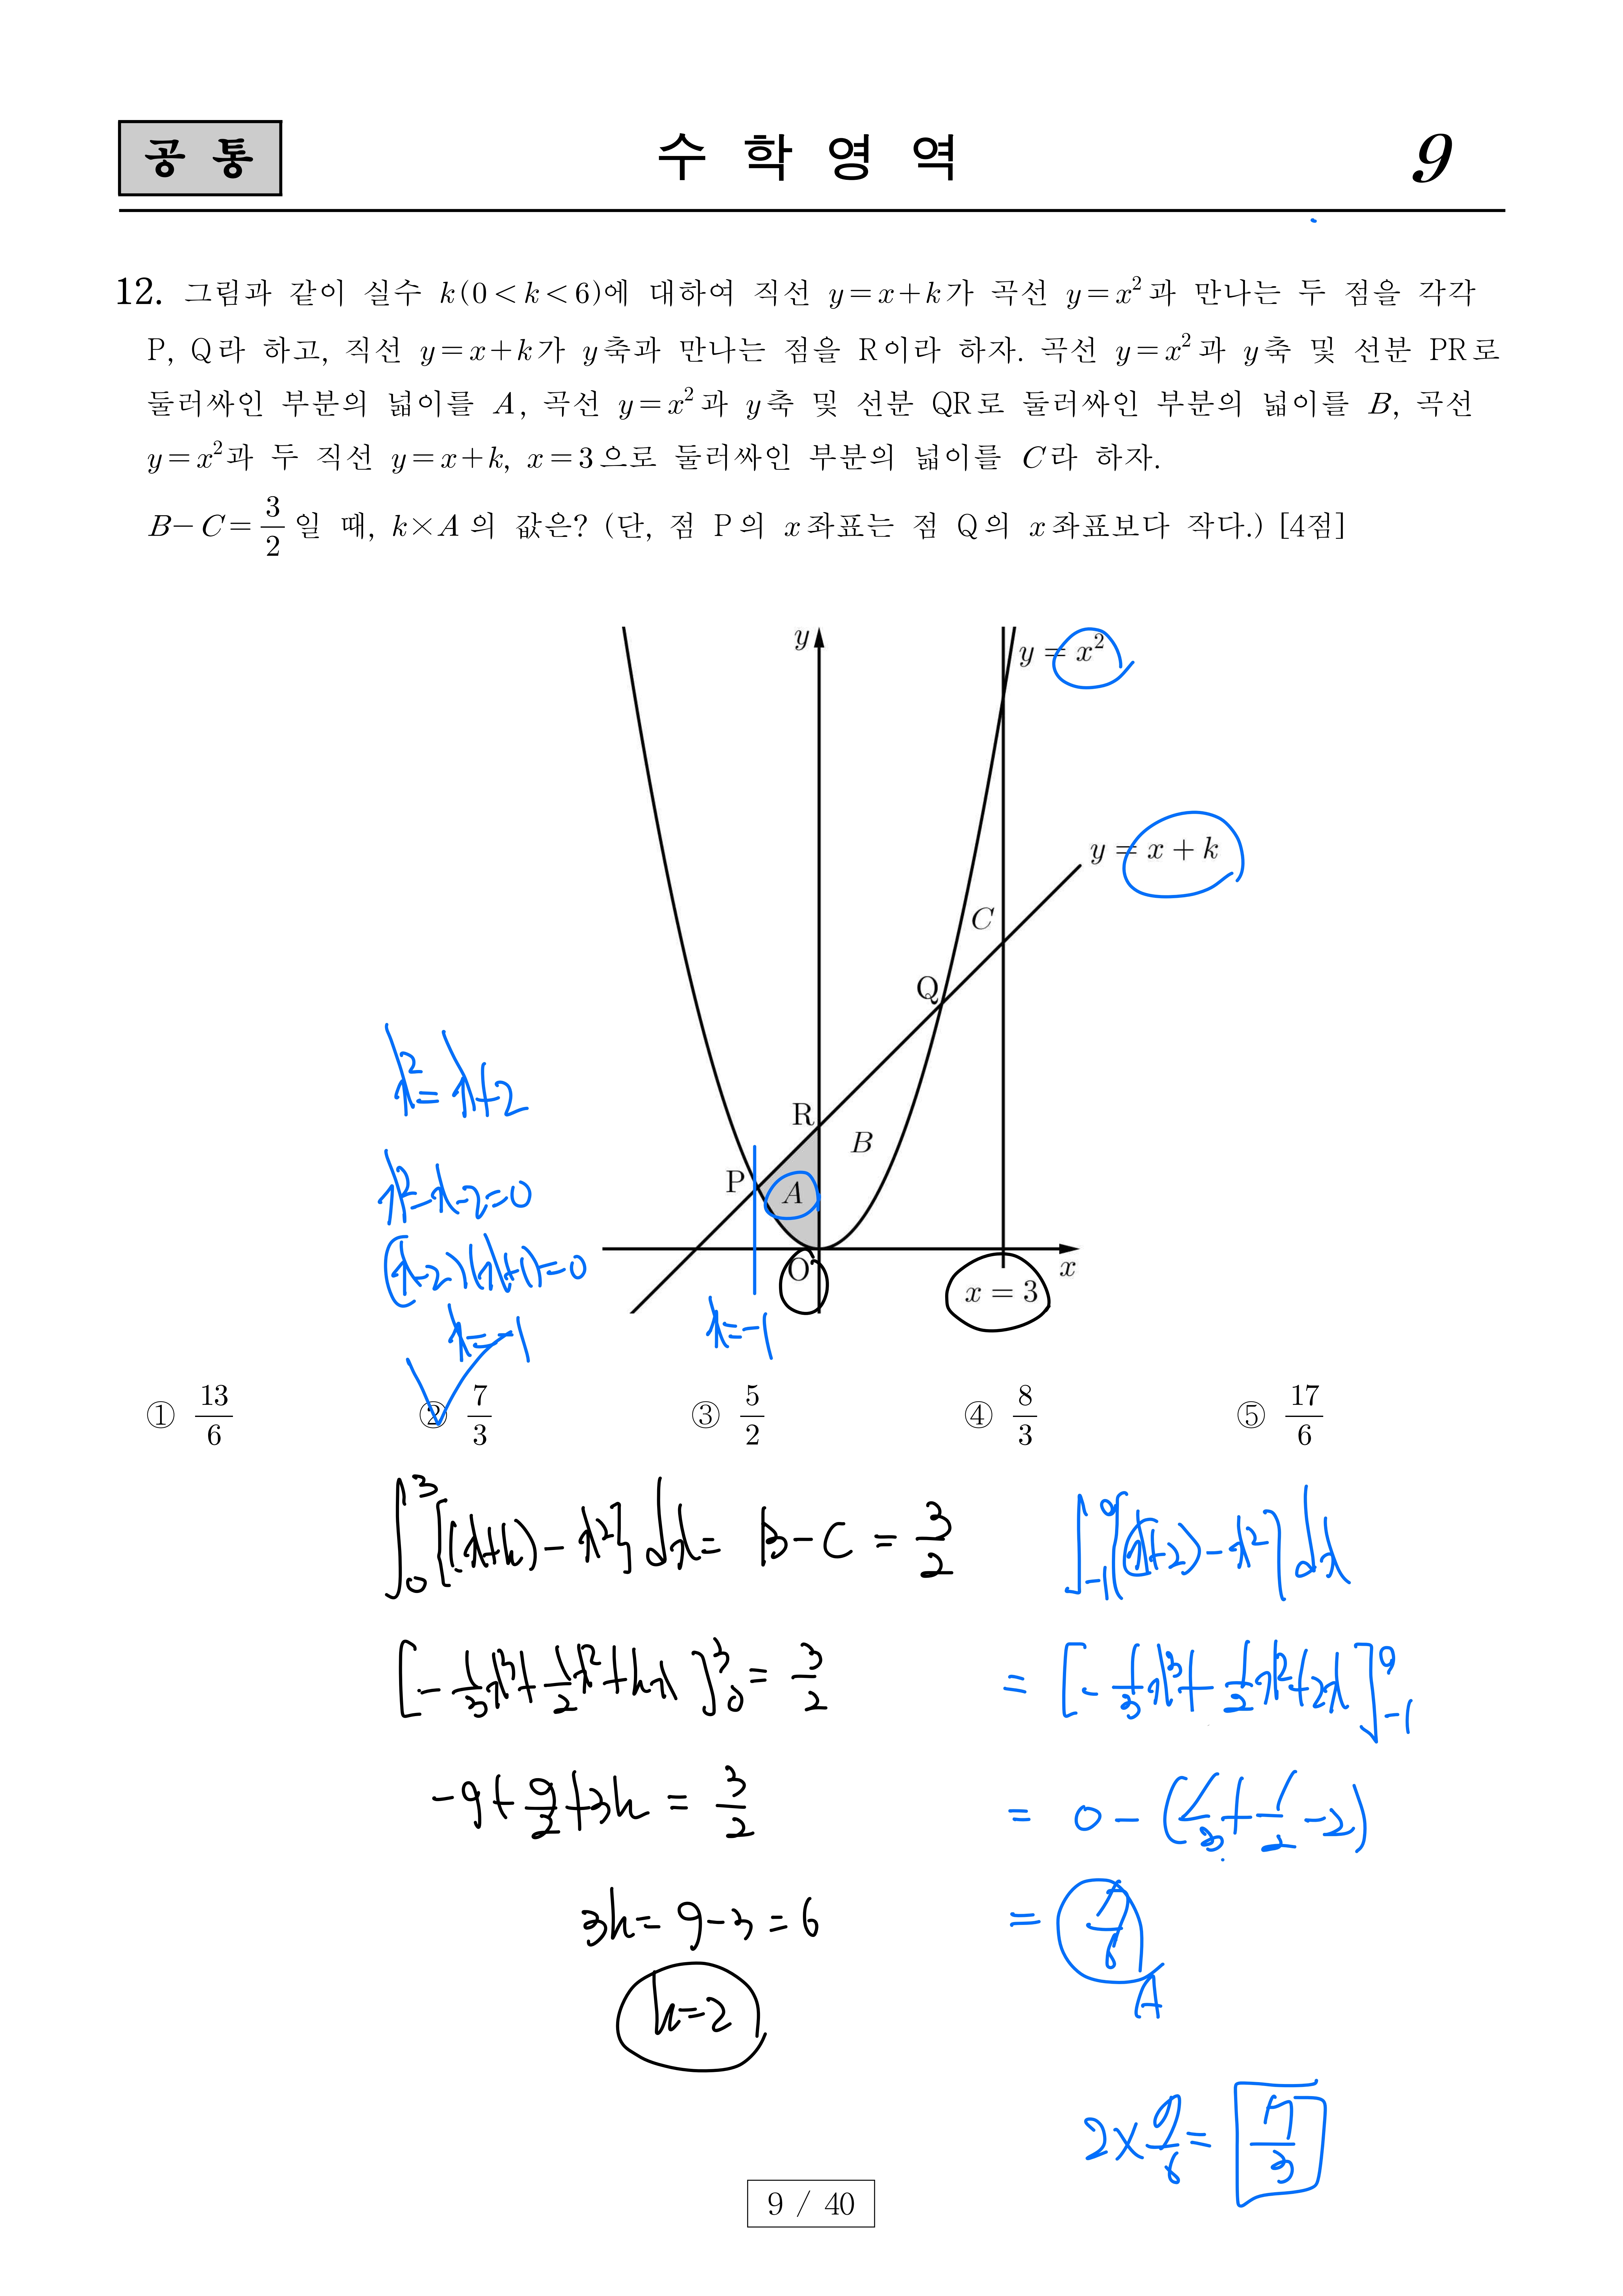 공 통
수 학 영 역
9
12. 그림과 같이 실수 k(0<k<6)에 대하여 직선 y=x+k가 곡선 y=x²과 만나는 두 점을 각각
P, Q라 하고, 직선 y=x+k가 y축과 만나는 점을 R이라 하자. 곡선 y=x²과 y축 및 선분 PR로
둘러싸인 부분의 넓이를 A, 곡선 y=x²과 y축 및 선분 QR로 둘러싸인 부분의 넓이를 B, 곡선
y=x²과 두 직선 y=x+k, x=3으로 둘러싸인 부분의 넓이를 C라 하자.
B-C=3/2일 때, k×A의 값은? (단, 점 P의 x좌표는 점 Q의 x좌표보다 작다.) [4점]
y
y=x²
y=x+k
C
Q
R
B
P
A
O
x
x=3
x²=x+2
x²-x-2=0
(x-2)(x+1)=0
x=-1
x=-1
① 13/6
② 7/3
③ 5/2
④ 8/3
⑤ 17/6
∫₀³[(x+k)-x²]dx = B-C = 3/2
[-1/3x³+1/2x²+kx]₀³ = 3/2
-9+9/2+3k = 3/2
3k=9-3=6
k=2
∫₋₁⁰[(x+2)-x²]dx
= [-1/3x³+1/2x²+2x]₋₁⁰
= 0-(1/3+1/2-2)
= 7/6
A
2×7/6= 7/3
9 / 40